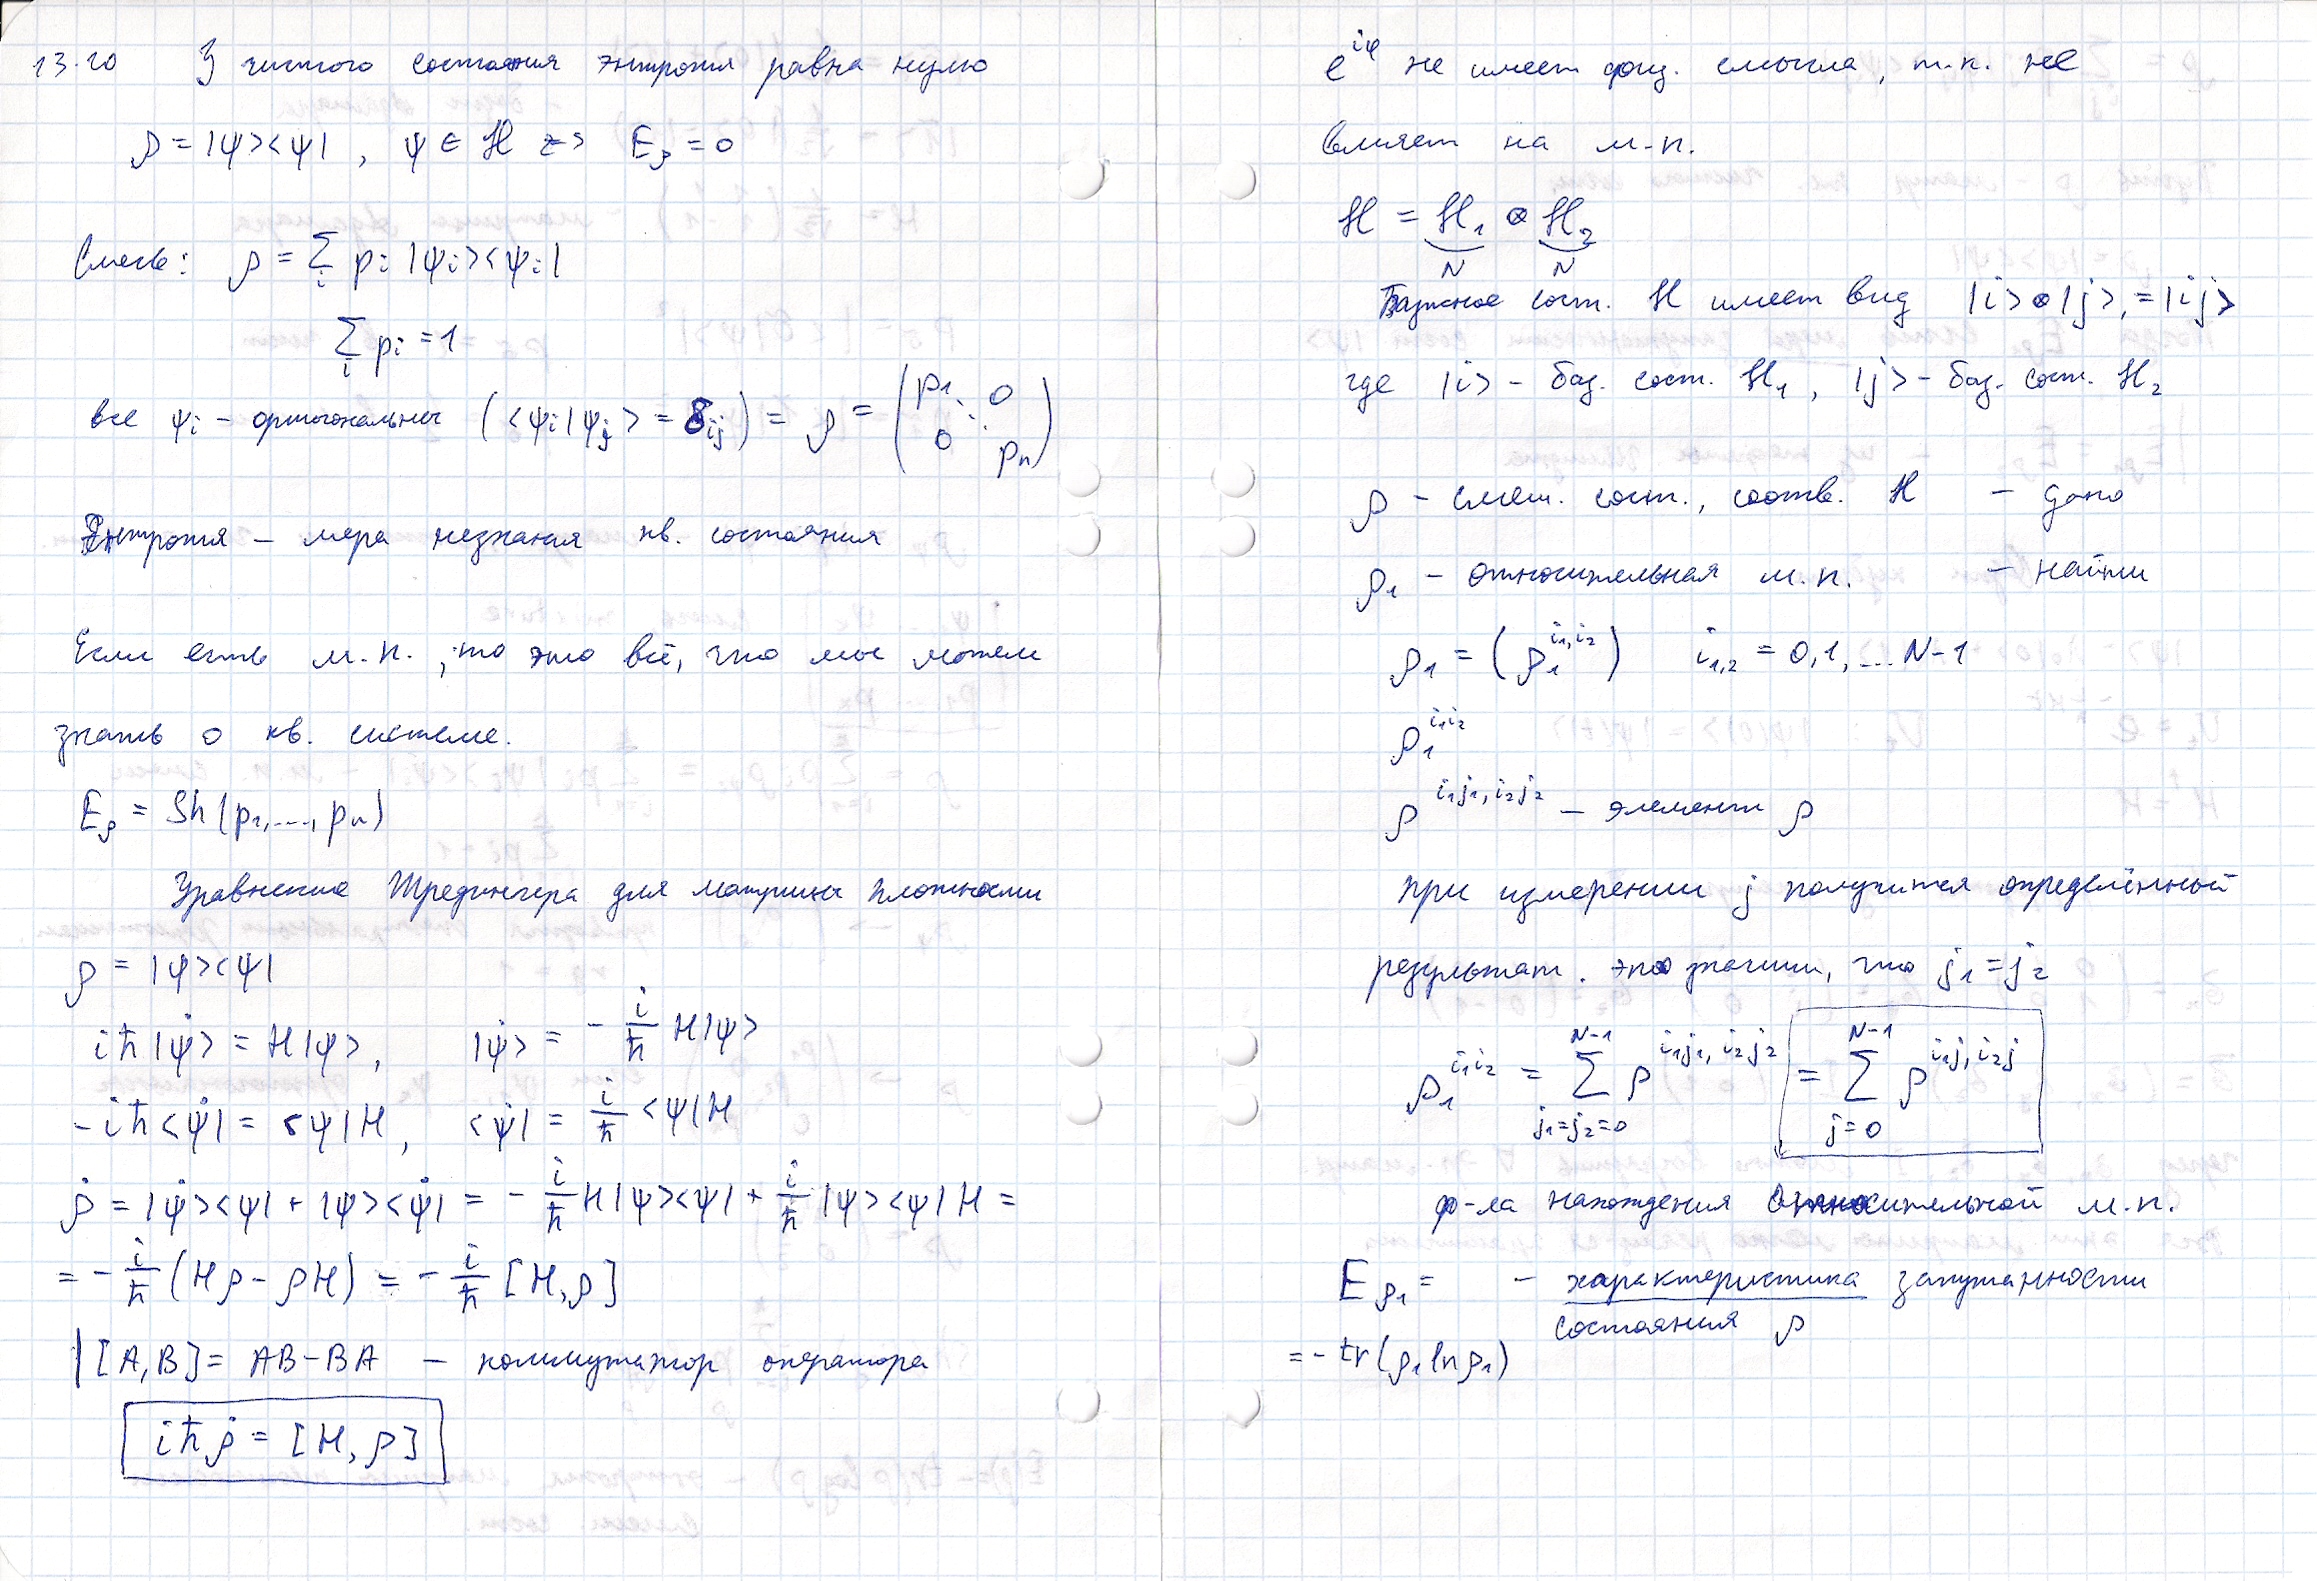 13.10 У чистого состояния энтропия равна нулю
ρ = |ψ><ψ| , ψ ∈ ℋ <=> E_ρ = 0
Смесь: ρ = ∑_i p_i |ψ_i><ψ_i|
∑_i p_i = 1
все ψ_i - ортогональны (<ψ_i|ψ_j> = δ_ij) = ρ = (p_1 ⋱ 0 0 p_n)
Энтропия – мера незнания кв. состояния
Если есть м.п., то это всё, что мы можем
знать о кв. системе.
E_ρ = Sh(p_1,...,p_n)
Уравнение Шредингера для матрицы плотности
ρ = |ψ><ψ|
iħ|ψ̇> = H|ψ>, |ψ̇> = - i/ħ H|ψ>
-iħ<ψ̇| = <ψ|H, <ψ̇| = i/ħ <ψ|H
ρ̇ = |ψ̇><ψ| + |ψ><ψ̇| = - i/ħ H|ψ><ψ| + i/ħ |ψ><ψ|H =
= - i/ħ (Hρ - ρH) = - i/ħ [H,ρ]
| [A,B] = AB-BA – коммутатор оператора
iħρ̇ = [H, ρ]
e^{iφ} не имеет физ. смысла, т.к. не
влияет на м.п.
ℋ = ℋ_1 ⊗ ℋ_2
N N
Базисное сост. ℋ имеет вид |i> ⊗ |j>, = |ij>
где |i> – баз. сост. ℋ_1, |j> – баз. сост. ℋ_2
ρ – смеш. сост., соотв. ℋ – дано
ρ_1 – относительная м.п. – найти
ρ_1 = (ρ_1^{i_1,i_2}) i_{1,2} = 0,1,...N-1
ρ_1^{i_1i_2}
ρ^{i_1j_1, i_2j_2} – элемент ρ
При измерении j получится определённый
результат. это значит, что j_1 = j_2
ρ_1^{i_1i_2} = ∑_{j_1=j_2=0}^{N-1} ρ^{i_1j_1, i_2j_2} = ∑_{j=0}^{N-1} ρ^{i_1j, i_2j}
ф-ла нахождения относительной м.п.
E_{ρ_1} = – характеристика запутанности
состояния ρ
= - tr(ρ_1 ln ρ_1)